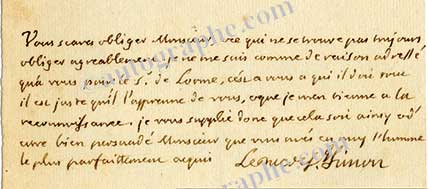 Vous scavés obliger Monsieur ce qui ne se trouve pas toujours
obliger agreablement, je ne me suis comme de raison adressé
qu'a vous pour le Sr. de Lorme, c'est a vous a qui il doit tout
il est juste qu'il l'apprenne de vous, et que je m'en tienne a la
reconnoissance. je vous supplie donc que cela soit ainsy et
estre bien persuadé Monsieur que vous avés en moy l'homme
le plus parfaittement acquis
©autographe.com
autographe.com